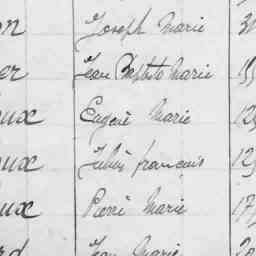 on Joseph Marie
er Jean Baptiste Marie
oux Eugène Marie 12
oux Jules françois 12
oux Pierre Marie 17
rd Jean Marie 20